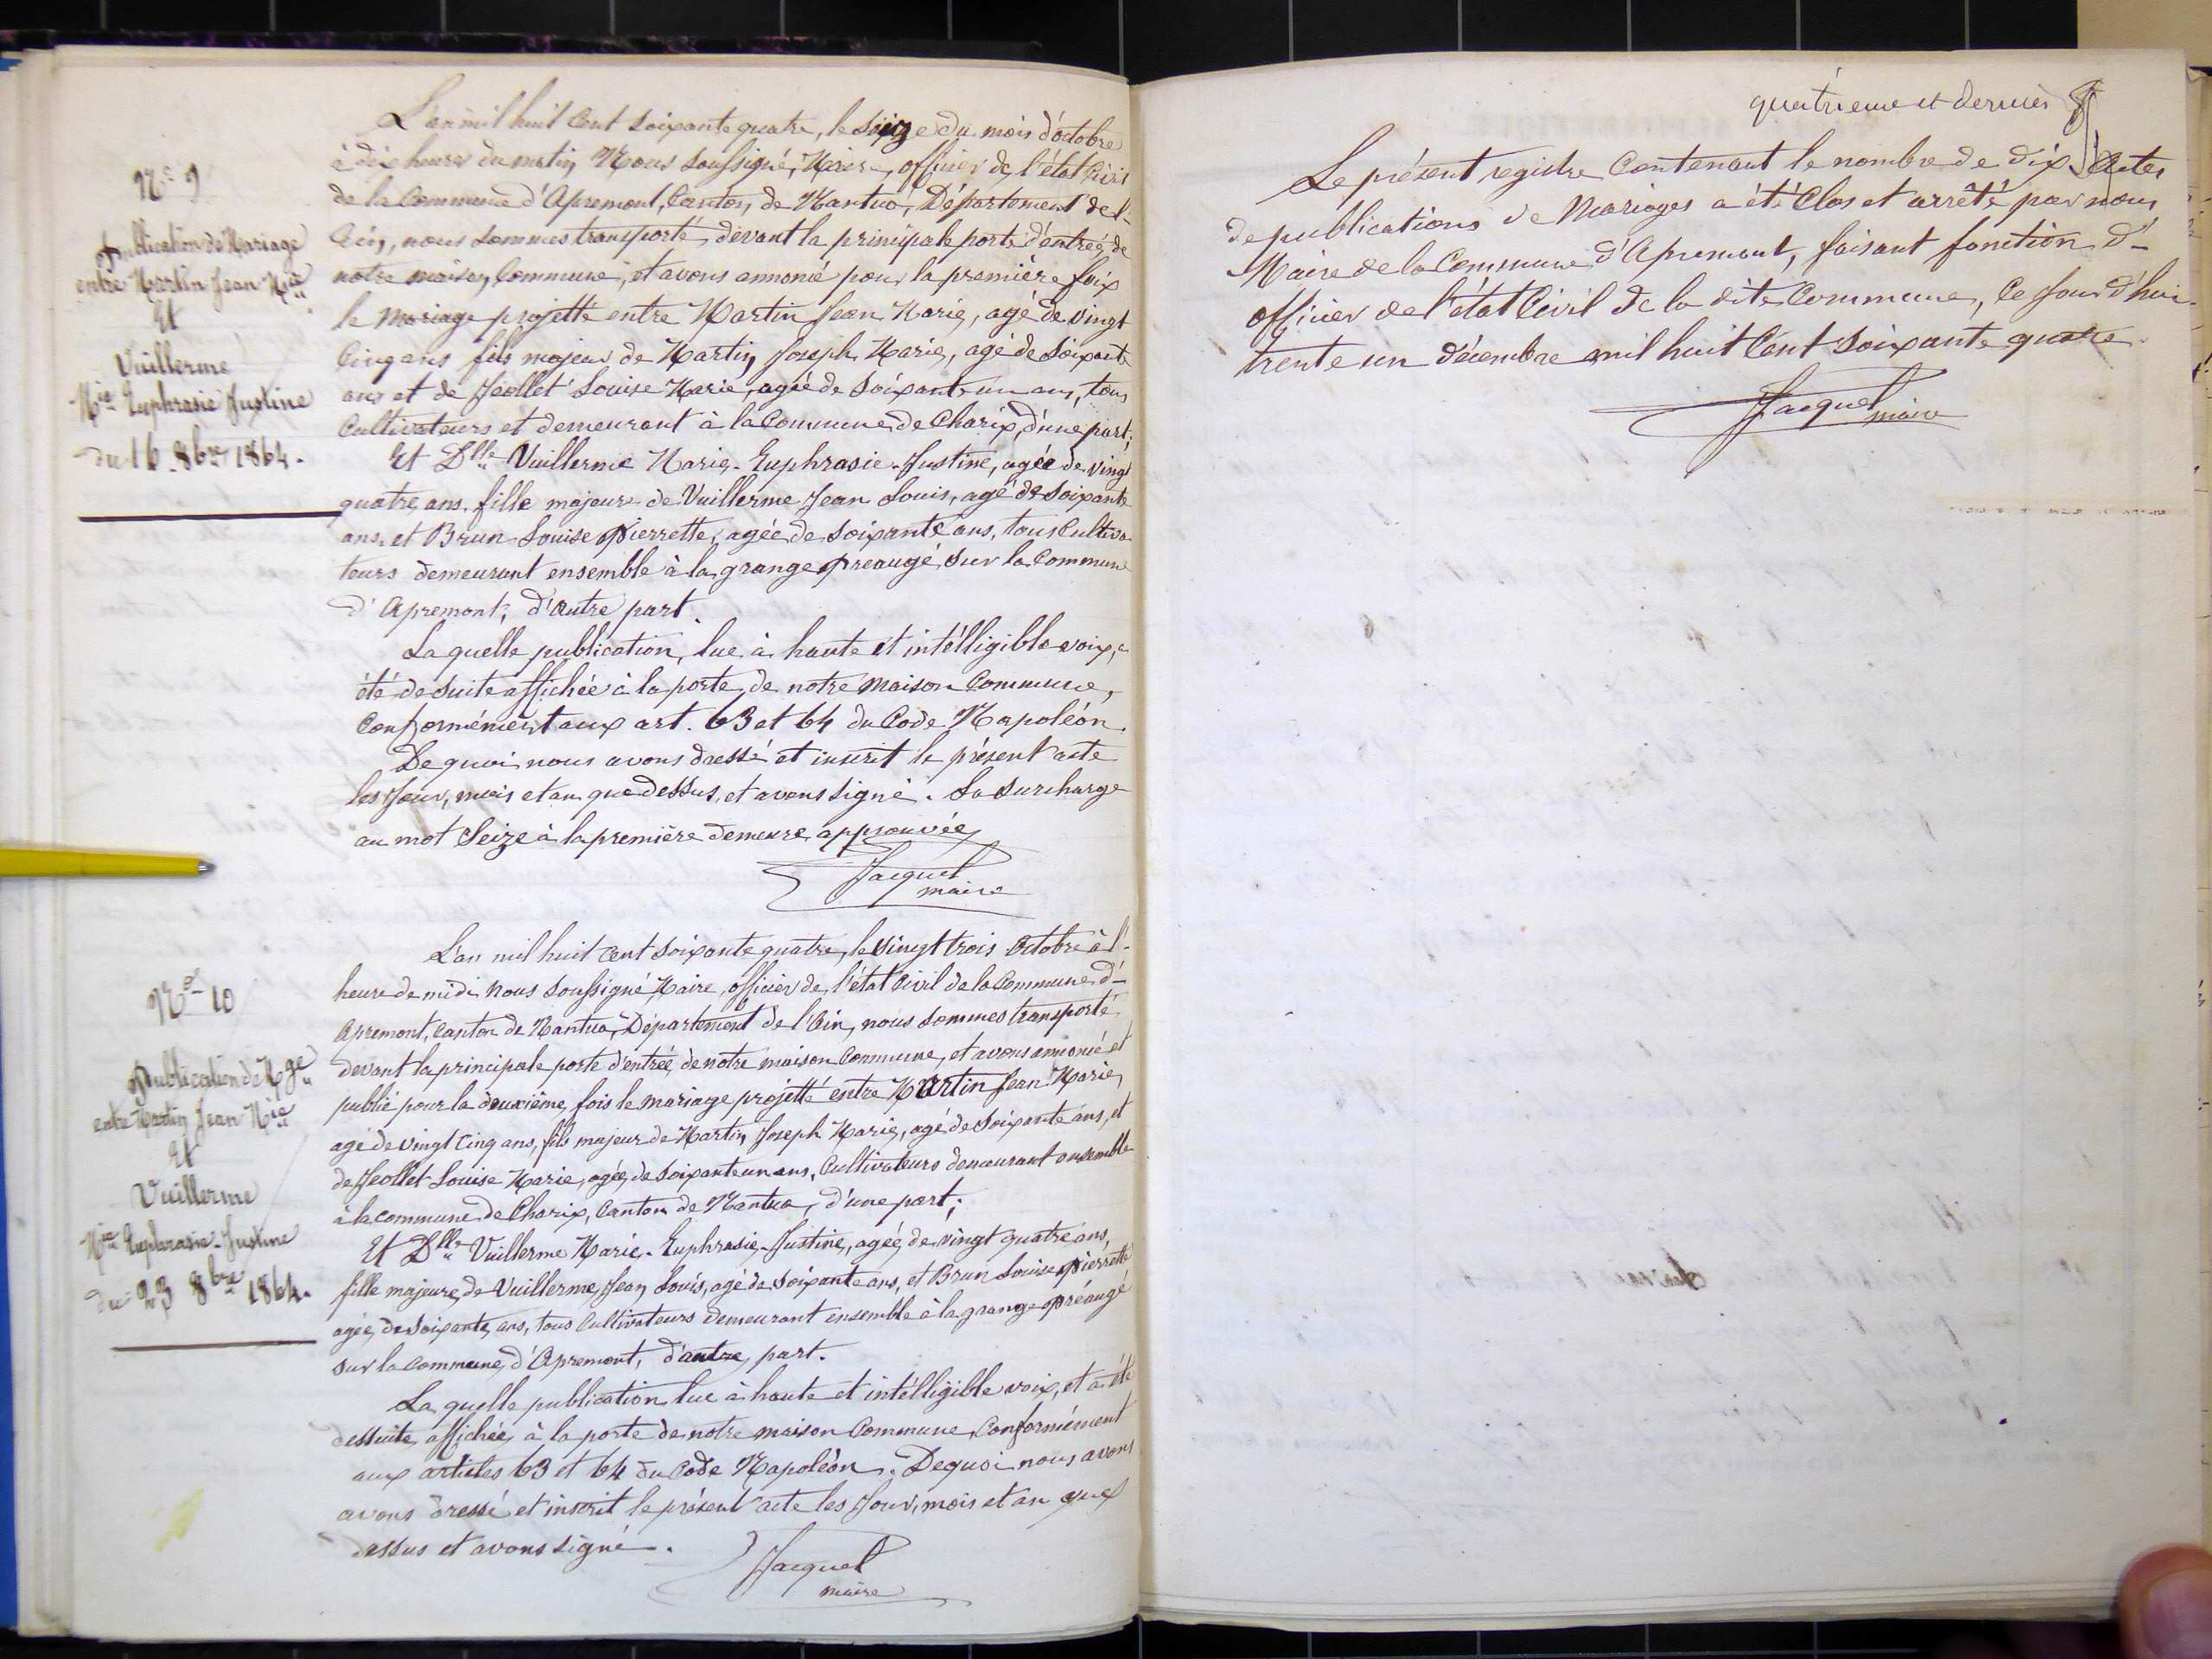 N.o 9
Publication de Mariage
entre Martin Jean M.ie
Et
Vuillerme
M.ie Euphrasie Justine
du 16 8bre 1864.
L'an mil huit Cent soixante quatre, le seize du mois d'octobre
à dix heures du matin, Nous soussigné, Maire, officier de l'état Civil
de la Commune d'Apremont, Canton de Nantua, Département de l'-
Ain, nous sommes transporté devant la principale porte d'entrée de
notre maison Commune, et avons annoncé pour la première foix
le mariage projetté entre Martin Jean Marie, agé de vingt
Cinq ans fils majeur de Martin Joseph Marie, agé de soixante
ans et de Jeollet Louise Marie, agée de soixante un ans, tous
Cultivateurs et demeurant à la Commune de Charix, d'une part;
Et Dlle Vuillerme Marie-Euphrasie-Justine, agée de vingt
quatre ans, fille majeure de Vuillerme Jean Louis, agé de soixante
ans, et Brun Louise Pierrette, agée de soixante ans, tous Cultiva-
teurs demeurant ensemble à la grange preaugé sur la Commune
d'Apremont, d'autre part.
La quelle publication, lue à haute et intélligible voix, a
été de suite affichée à la porte de notre maison Commune,
Conformément aux art. 63 et 64 du Code Napoléon.
De quoi nous avons dressé et inscrit le présent acte
les Jour, mois et an que dessus, et avons signé. La surcharge
au mot Seize à la première demeure approuvée
Jacquet
maire
N.o 10
Publication de Mge
entre Martin Jean Mie
Et
Vuillerme
Mie Euphrasie-Justine
du 23 8bre 1864.
L'an mil huit Cent soixante quatre, le vingt trois Octobre à l'-
heure de midi Nous soussigné Maire, officier de l'état Civil de la Commune d'-
Apremont, Canton de Nantua, Département de l'Ain, nous sommes transporté
devant la principale porte d'entrée de notre maison Commune, et avons annoncé et
publié pour la deuxième fois le mariage projetté entre Martin Jean Marie,
agé de vingt Cinq ans, fils majeur de Martin Joseph Marie, agé de soixante ans, et
de Jeollet Louise Marie, agée de soixante un ans, Cultivateurs demeurant ensemble
à la commune de Charix, Canton de Nantua, d'une part;
Et Dlle Vuillerme Marie-Euphrasie-Justine, agée de vingt quatre ans,
fille majeure de Vuillerme Jean Louis, agé de soixante ans, et Brun Louise Pierrette
agée de soixante ans, tous Cultivateurs demeurant ensemble à la grange préaugé
sur la Commune d'Apremont, d'autre part.
La quelle publication lue à haute et intélligible voix, et a été
dessuite affichée à la porte de notre maison Commune, Conformément
aux articles 63 et 64 du Code Napoléon. De quoi nous avons
avons dressé et inscrit le présent acte les Jour, mois et an que
dessus et avons signé.
Jacquet
maire
quatrieme et dernier
Le présent registre Contenant le nombre de dix Actes
de publications de Mariages a été Clos et arrêté par nous,
Maire de la Commune d'Apremont, faisant fonction d'-
officier de l'état Civil de la dite Commune, Ce Jour d'hui
trente un décembre mil huit Cent soixante quatre.
Jacquet
maire